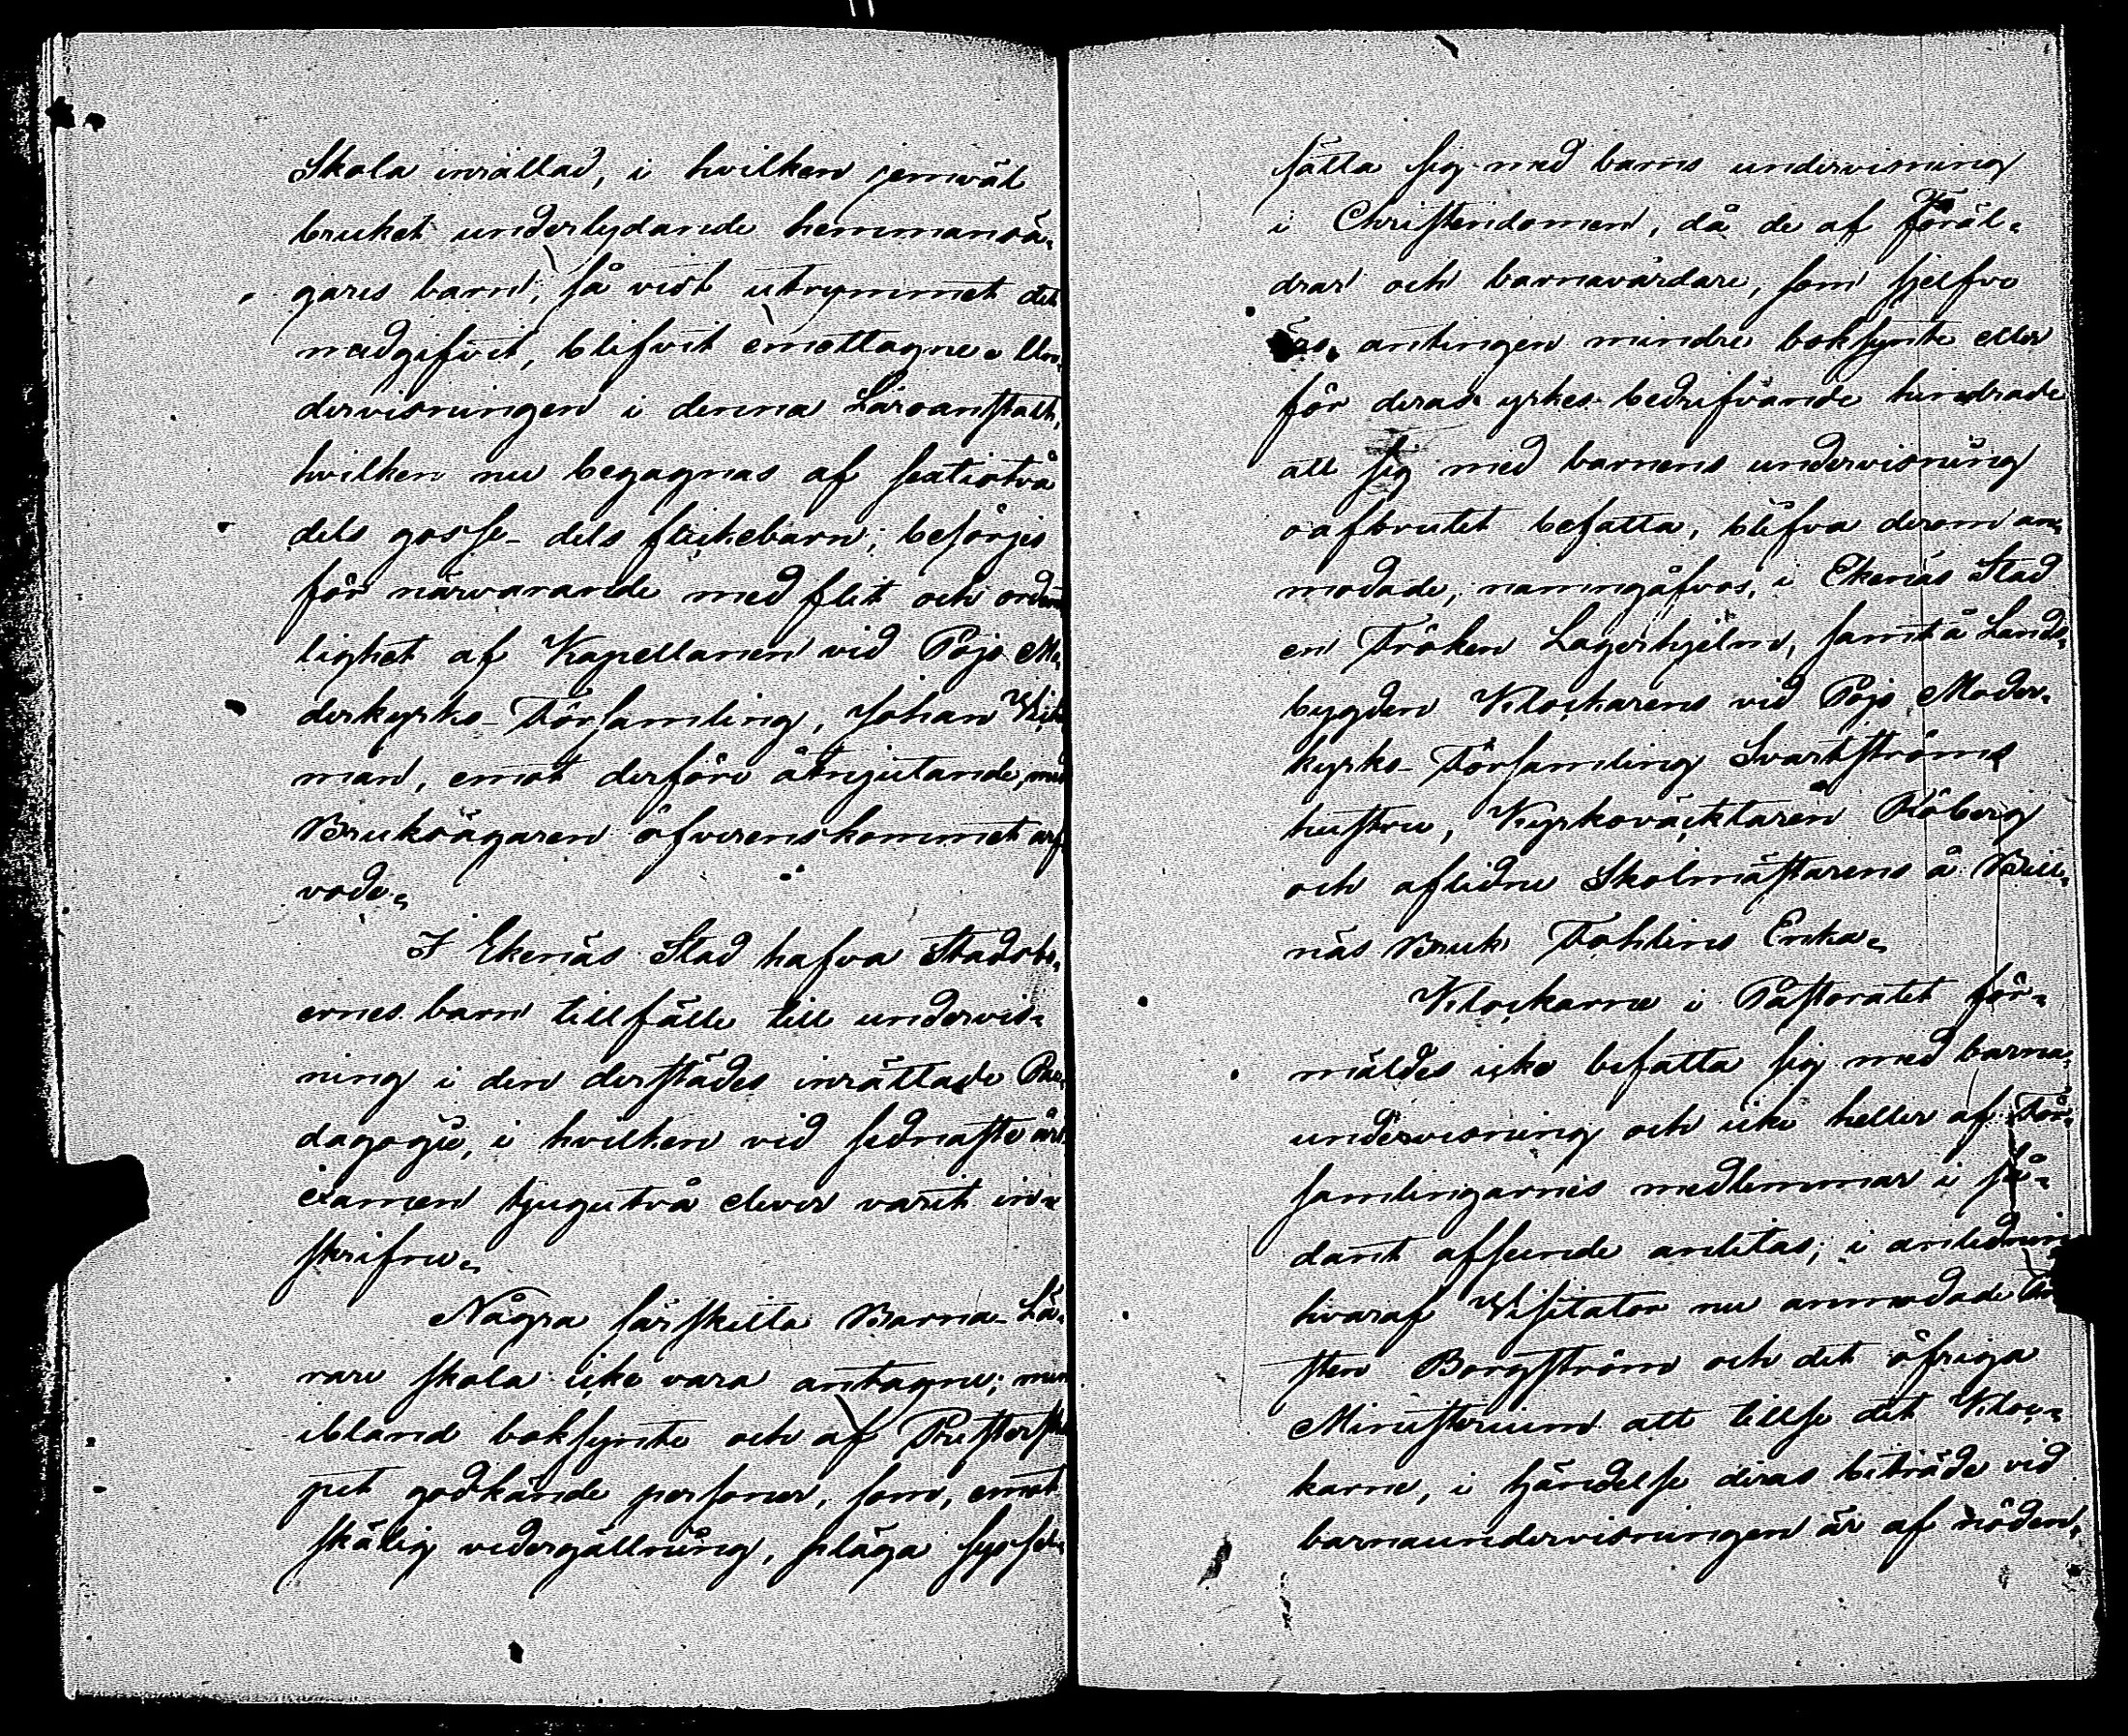 Skola inrättad, i hvilken jemväl
bruket underlydande hemmansä-
gares barn, så vidt utrymmet det
medgifvit, blifvit emottagne. Un-
dervisningen i denna Läroanstalt,
hvilken nu begagnas af sextiotvå
dels gosse- dels flickebarn, besörjes
för närvarande med flit och ordent
lighet af Kapellanen vid Pojo Mo-
derkyrko-Församling, Johan
man, emot derföre åtnjutande, med
Bruksägaren öfverenskommet arf
vode.
I Ekenäs Stad hafva Stadsbo-
ernes barn tillfälle till undervis-
ning i den derstädes inrättade Pae-
dagogie, i hvilken vid sednaste års
examen tjugutvå elever varit in-
skrifne.
Några särskilta Barna-Lä-
rare skola icke vara antagne; men
ibland boksynte och af Presterska
pet godkände personer, som, emot
skälig vedergällning, pläga syssel-
sätta sig med barns undervisning
i Christendomen, då de af Föräl-
drar och barnavårdare, som sjelfve
äro antingen mindre boksynte eller
för deras yrkes bedrifvande hindrade
att sig med barnens undervisning
oafbrutet befatta, blifva derom an-
modade, namngåfvos, i Ekenäs Stad
en Fröken Lagerhjelm, samt å Lands-
bygden Klockarens vid Pojo Moder-
kyrko-Församling Svartströms
hustru, Kyrkoväcktaren Röberg
och aflidne Skolmästarens å Bill-
näs Bruk Fohlins Enka.
Klockarne i Pastoratet för-
mäldes icke befatta sig med barna-
undervisning och icke heller af För-
samlingarnes medlemmar i så-
dant afseende anlitas; i anledning
hvaraf Visitator nu anmodade
sten Borgström och det öfriga
Ministerium att tillse det Kloc-
karne, i händelse deras biträde vid
barnaundervisningen är af nöden,